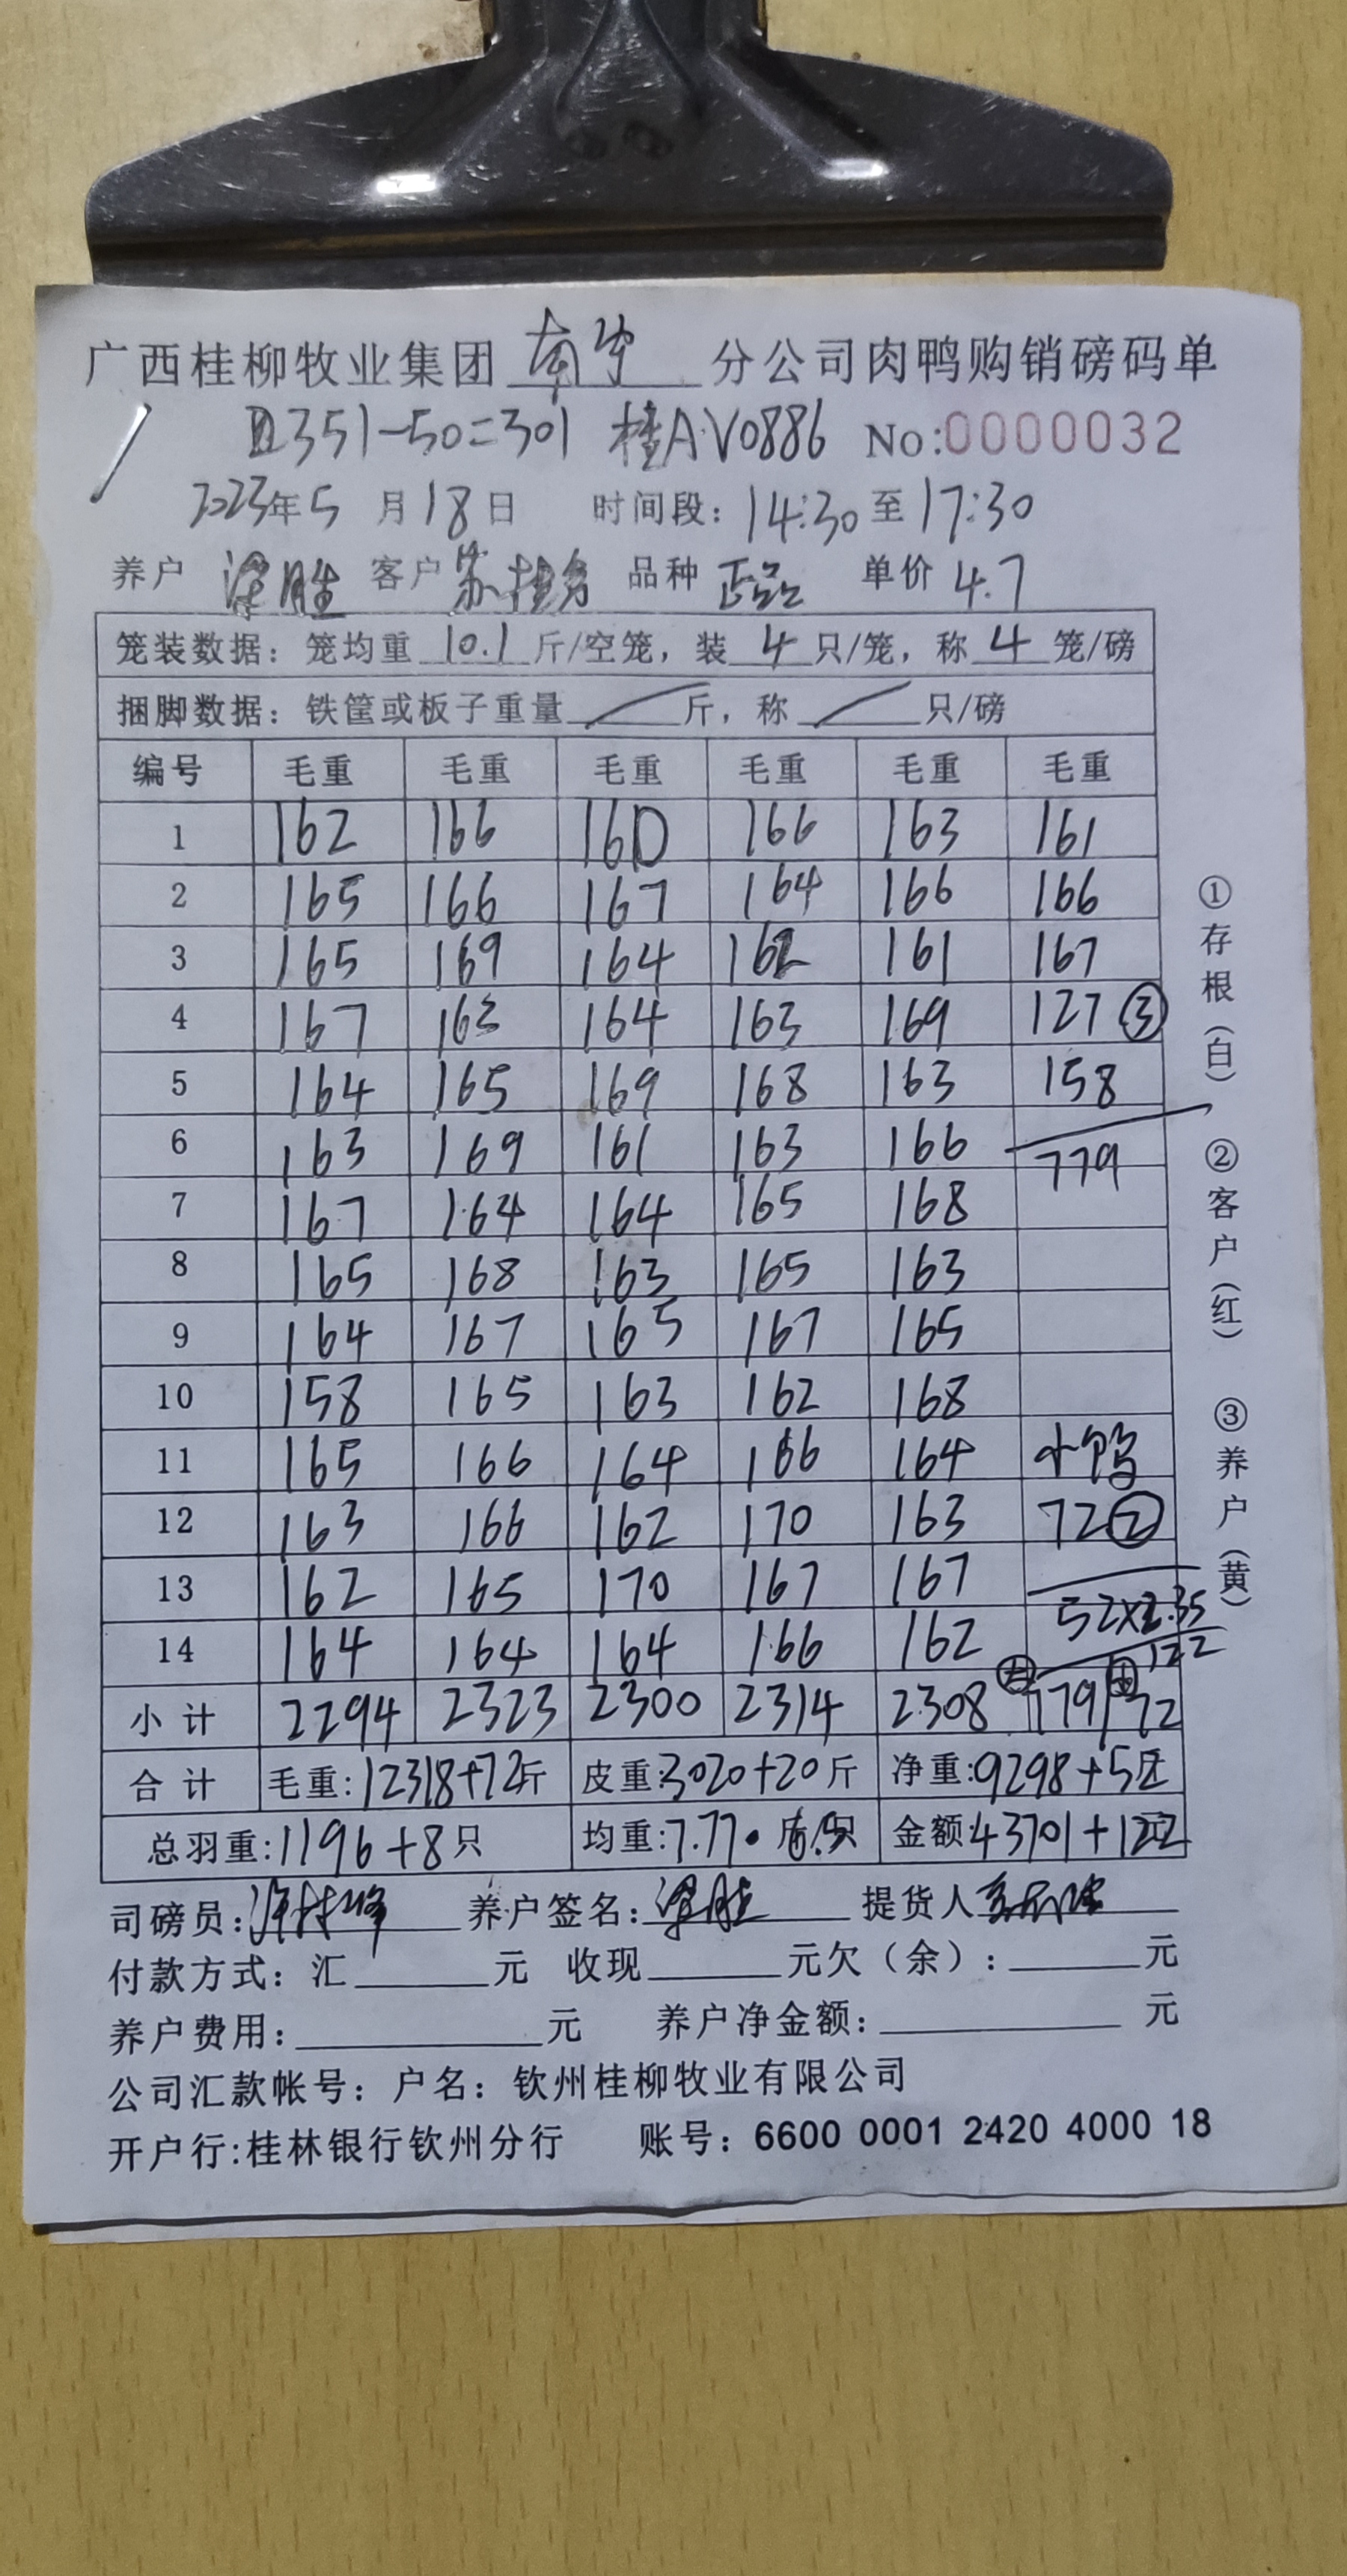 广西桂柳牧业集团 南宁 分公司肉鸭购销磅码单
351-50=301 桂A·V0886 No:0000032
2023年5月18日 时间段:14:30至17:30
养户 梁胜 客户 苏桂芬 品种 正品 单价 4.7
笼装数据:笼均重 10.1 斤/空笼,装 4 只/笼,称 4 笼/磅
捆脚数据:铁筐或板子重量 / 斤,称 / 只/磅
编号 毛重 毛重 毛重 毛重 毛重 毛重
1 162 166 160 166 163 161
2 165 166 167 164 166 166
3 165 169 164 162 161 167
4 167 163 164 163 169 127 ③
5 164 165 169 168 163 158
6 163 169 161 163 166 779
7 167 164 164 165 168
8 165 168 163 165 163
9 164 167 165 167 165
10 158 165 163 162 168
11 165 166 164 166 164 小鸭
12 163 166 162 170 163 72②
13 162 165 170 167 167 52×2.35
14 164 164 164 166 162 122
小计 2294 2323 2300 2314 2308 大 779 小 72
合计 毛重:12318+72斤 皮重:3020+20斤 净重:9298+52
总羽重:1196+8只 均重:7.77 金额:43701+122
司磅员: 养户签名:梁胜 提货人
付款方式:汇 元 收现 元欠(余): 元
养户费用: 元 养户净金额: 元
公司汇款帐号:户名:钦州桂柳牧业有限公司
开户行:桂林银行钦州分行 账号:6600 0001 2420 4000 18
①存根(白) ②客户(红) ③养户(黄)